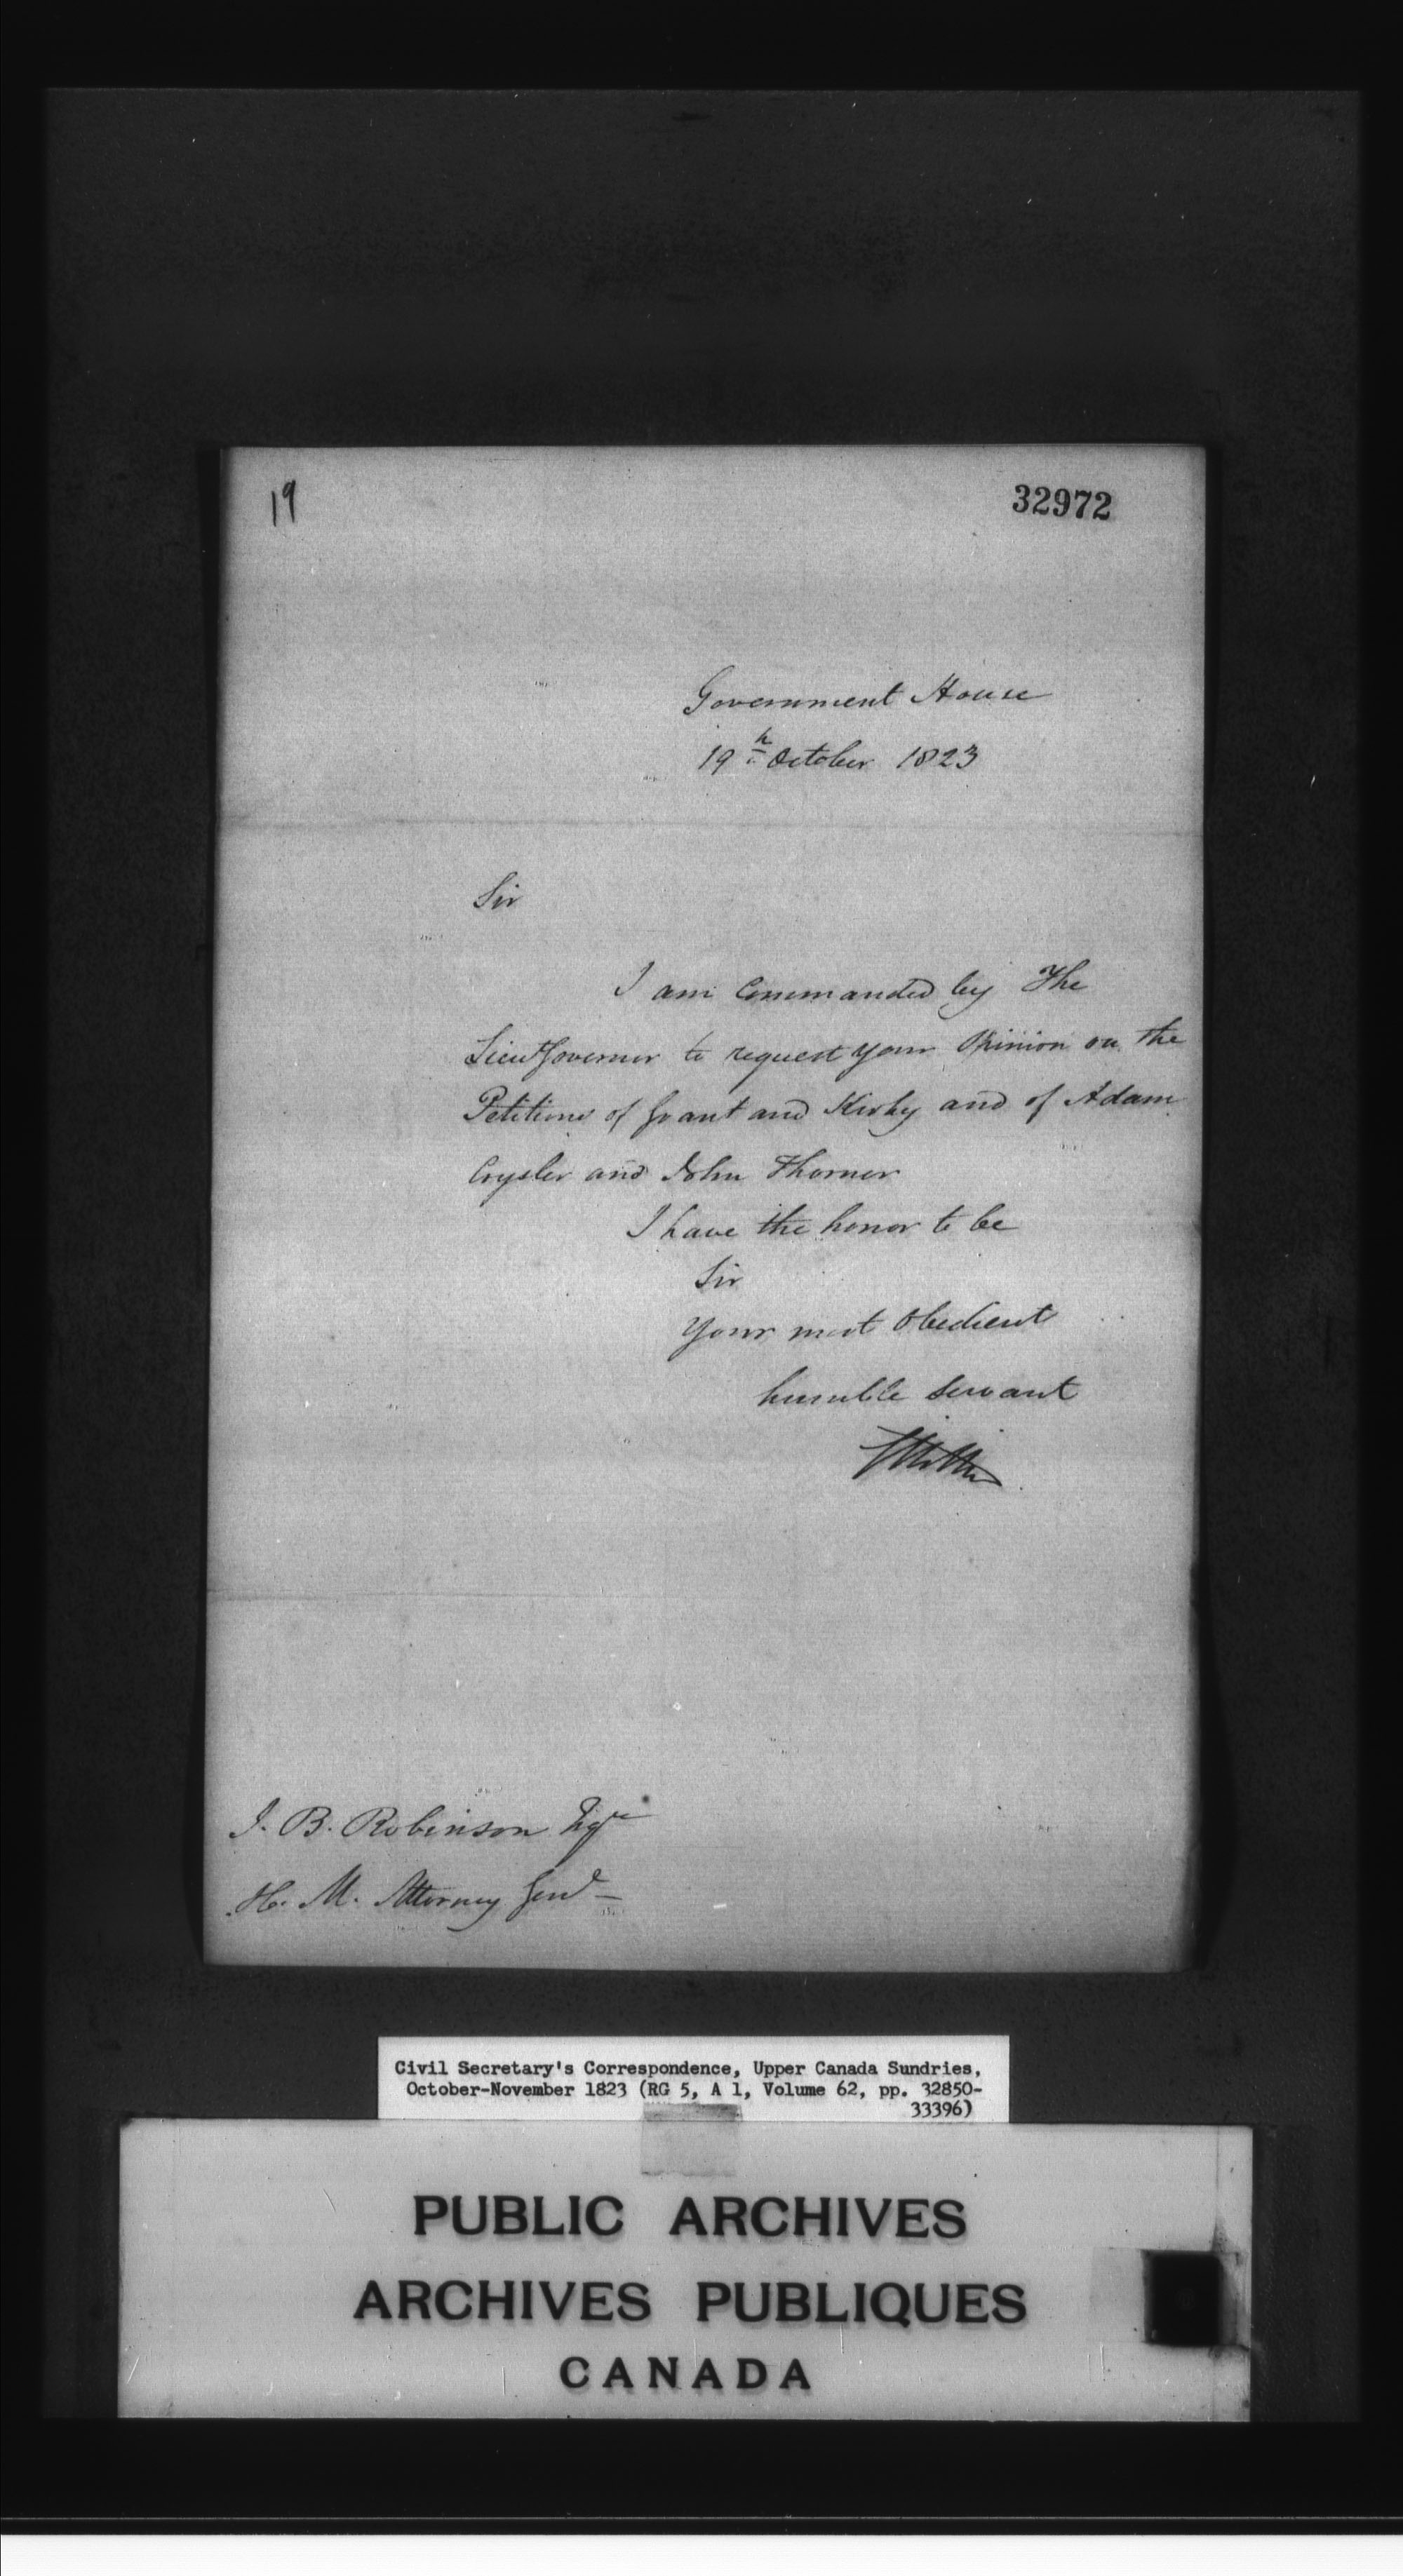 19
32972
Government House
19th October 1823
Sir
I am Commanded by The
Lieut Governor to request your Opinion on the
Petitions of Grant and Kirby and of Adam
Crysler and John Thorner
I have the honor to be
Sir
Your most Obedient
humble Servant
J. B. Robinson Esqre
H. M. Attorney Genl
Civil Secretary's Correspondence, Upper Canada Sundries,
October-November 1823 (RG 5, A 1, Volume 62, pp. 32850-
33396)
PUBLIC ARCHIVES
ARCHIVES PUBLIQUES
CANADA